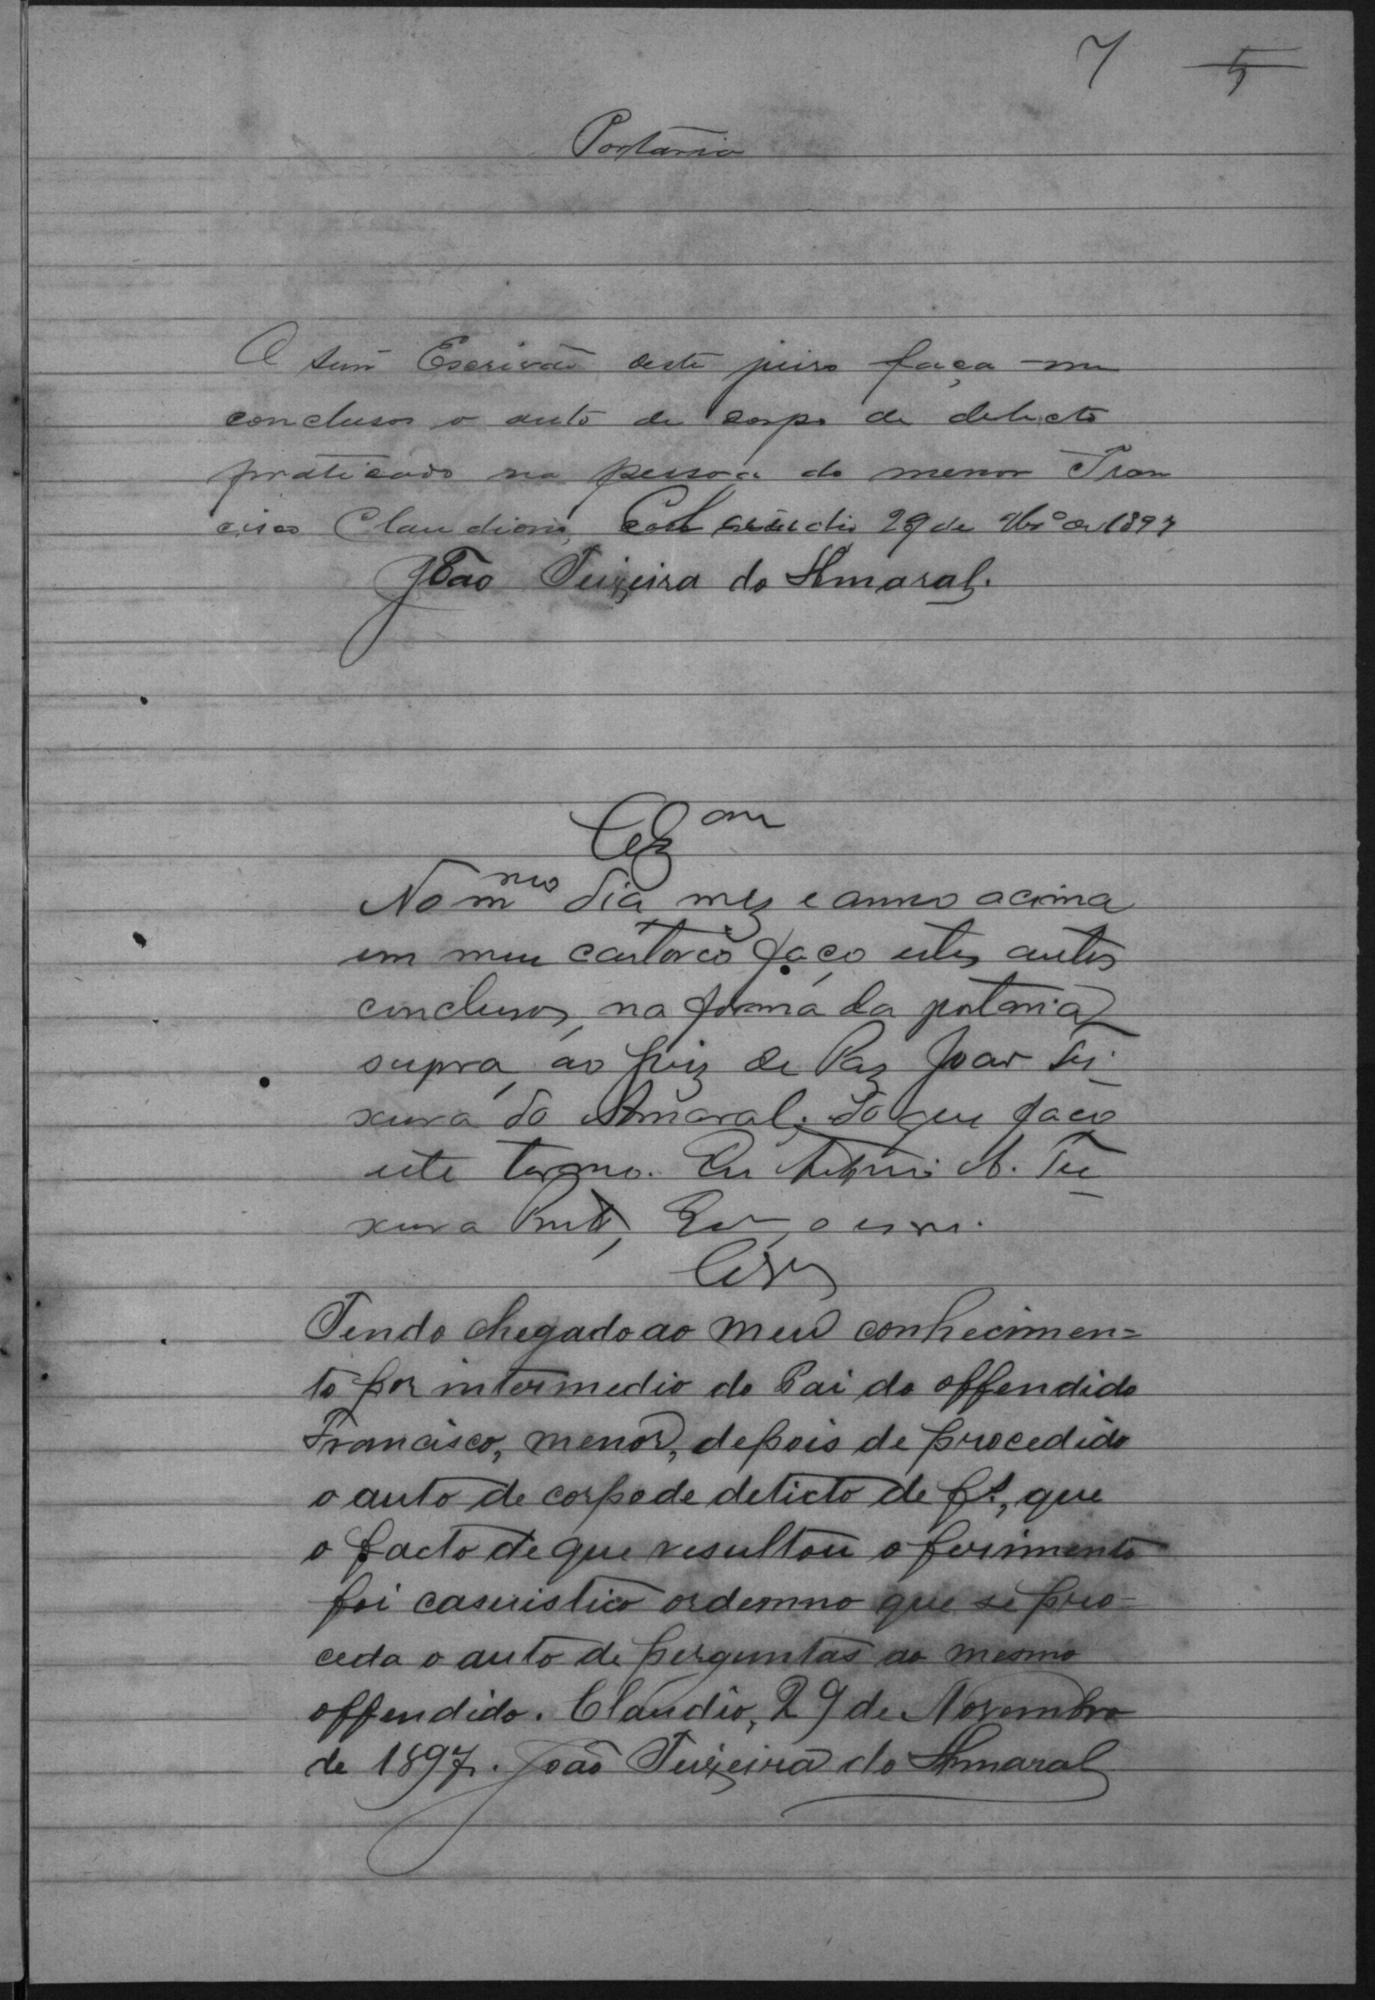 7 5
Portaria
O snr Escrivão deste juiso faça-me
concluso o auto de corpo de delicto
praticado na pessoa do menor Fran
cisco Claudiono, Claudio 29 de 9brº de 1897
João Teixeira do Amaral.
Clzam
No mmo dia mez e anno acima
em meu cartorio faço estes autos
conclusos, na forma da portaria
supra, ao Juiz de Paz Joao Tei-
xeira do Amaral; do que faço
este termo. Eu Antonio A. Tei
xeira, o escri.
Clsos
Tendo chegado ao meu conhecimen=
to por intermedio do Pai do offendido
Francisco, menor, depois de procedido
o auto de corpo de delicto de fs., que
o facto de que resultou o ferimento
foi caseristico ordemno que se pro-
ceda o auto de perguntas ao mesmo
offendido. Claudio, 29 de Novembro
de 1897. João Teixeira do Amaral